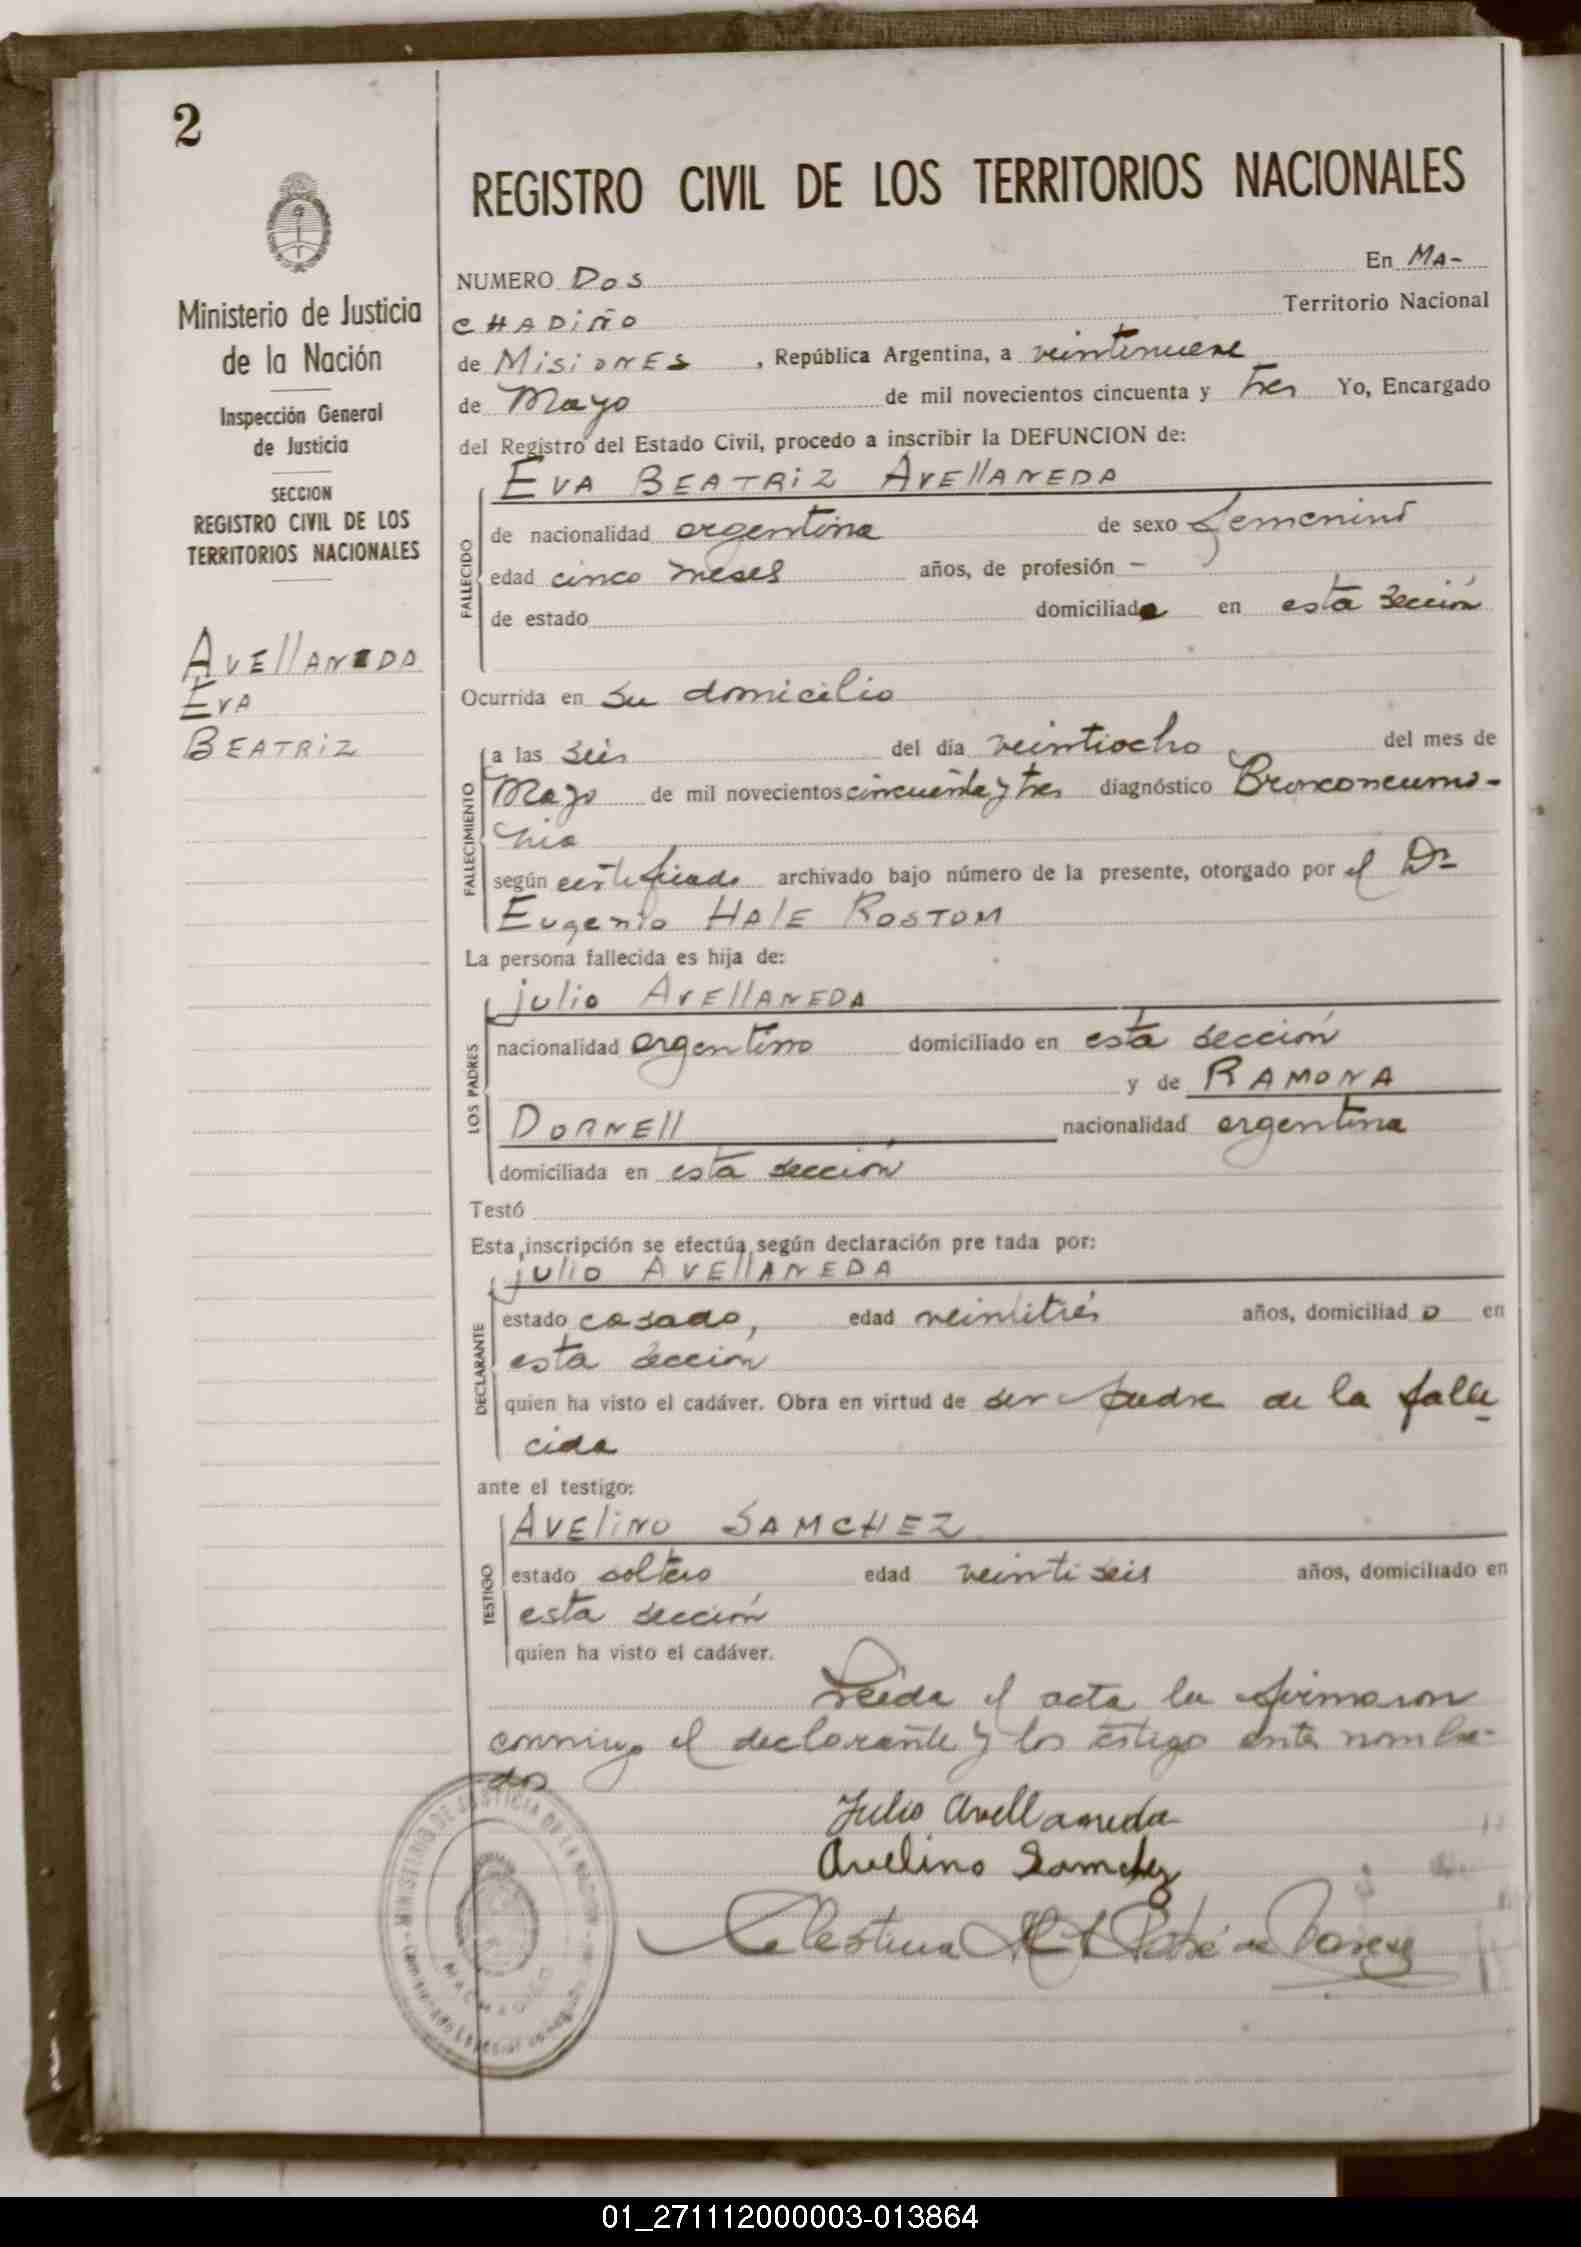 2
REGISTRO CIVIL DE LOS TERRITORIOS NACIONALES
Ministerio de Justicia
de la Nación
Inspección General
de Justicia
SECCION
REGISTRO CIVIL DE LOS
TERRITORIOS NACIONALES
AVEllANEDA
EVA
BEATRiZ
NUMERO Dos En MA-
CHADiÑO Territorio Nacional
de MisiONES , República Argentina, a veintinueve
de Mayo de mil novecientos cincuenta y tres Yo, Encargado
del Registro del Estado Civil, procedo a inscribir la DEFUNCION de:
EVA BEATRiZ AVEllANEDA
FALLECIDO
de nacionalidad argentina de sexo femenino
edad cinco meses años, de profesión –
de estado domiciliada en esta sección
Ocurrida en su domicilio
FALLECIMIENTO
a las seis del día veintiocho del mes de
Mayo de mil novecientos cincuenta y tres diagnóstico Bronconeumo-
nia
según certificado archivado bajo número de la presente, otorgado por el Dr
Eugenio HALE ROSTOM
La persona fallecida es hija de:
LOS PADRES
julio AVEllANEDA
nacionalidad argentino domiciliado en esta sección
y de RAMONA
DORNEll nacionalidad argentina
domiciliada en esta sección
Testó
Esta inscripción se efectúa según declaración pre tada por:
DECLARANTE
julio AVEllANEDA
estado casado, edad veintitrés años, domiciliado en
esta sección
quien ha visto el cadáver. Obra en virtud de ser padre de la falle
cida
ante el testigo:
TESTIGO
AVEliNO SAMCHEZ
estado soltero edad veinti seis años, domiciliado en
esta sección
quien ha visto el cadáver.
Leida el acta la firmaron
conmigo el declarante y los testigo ante nombra-
dos
Julio Avellaneda
Avelino Samchez
Celestina de
MINISTERIO DE JUSTICIA DE LA NACION
MACHADIÑO
01_271112000003-013864